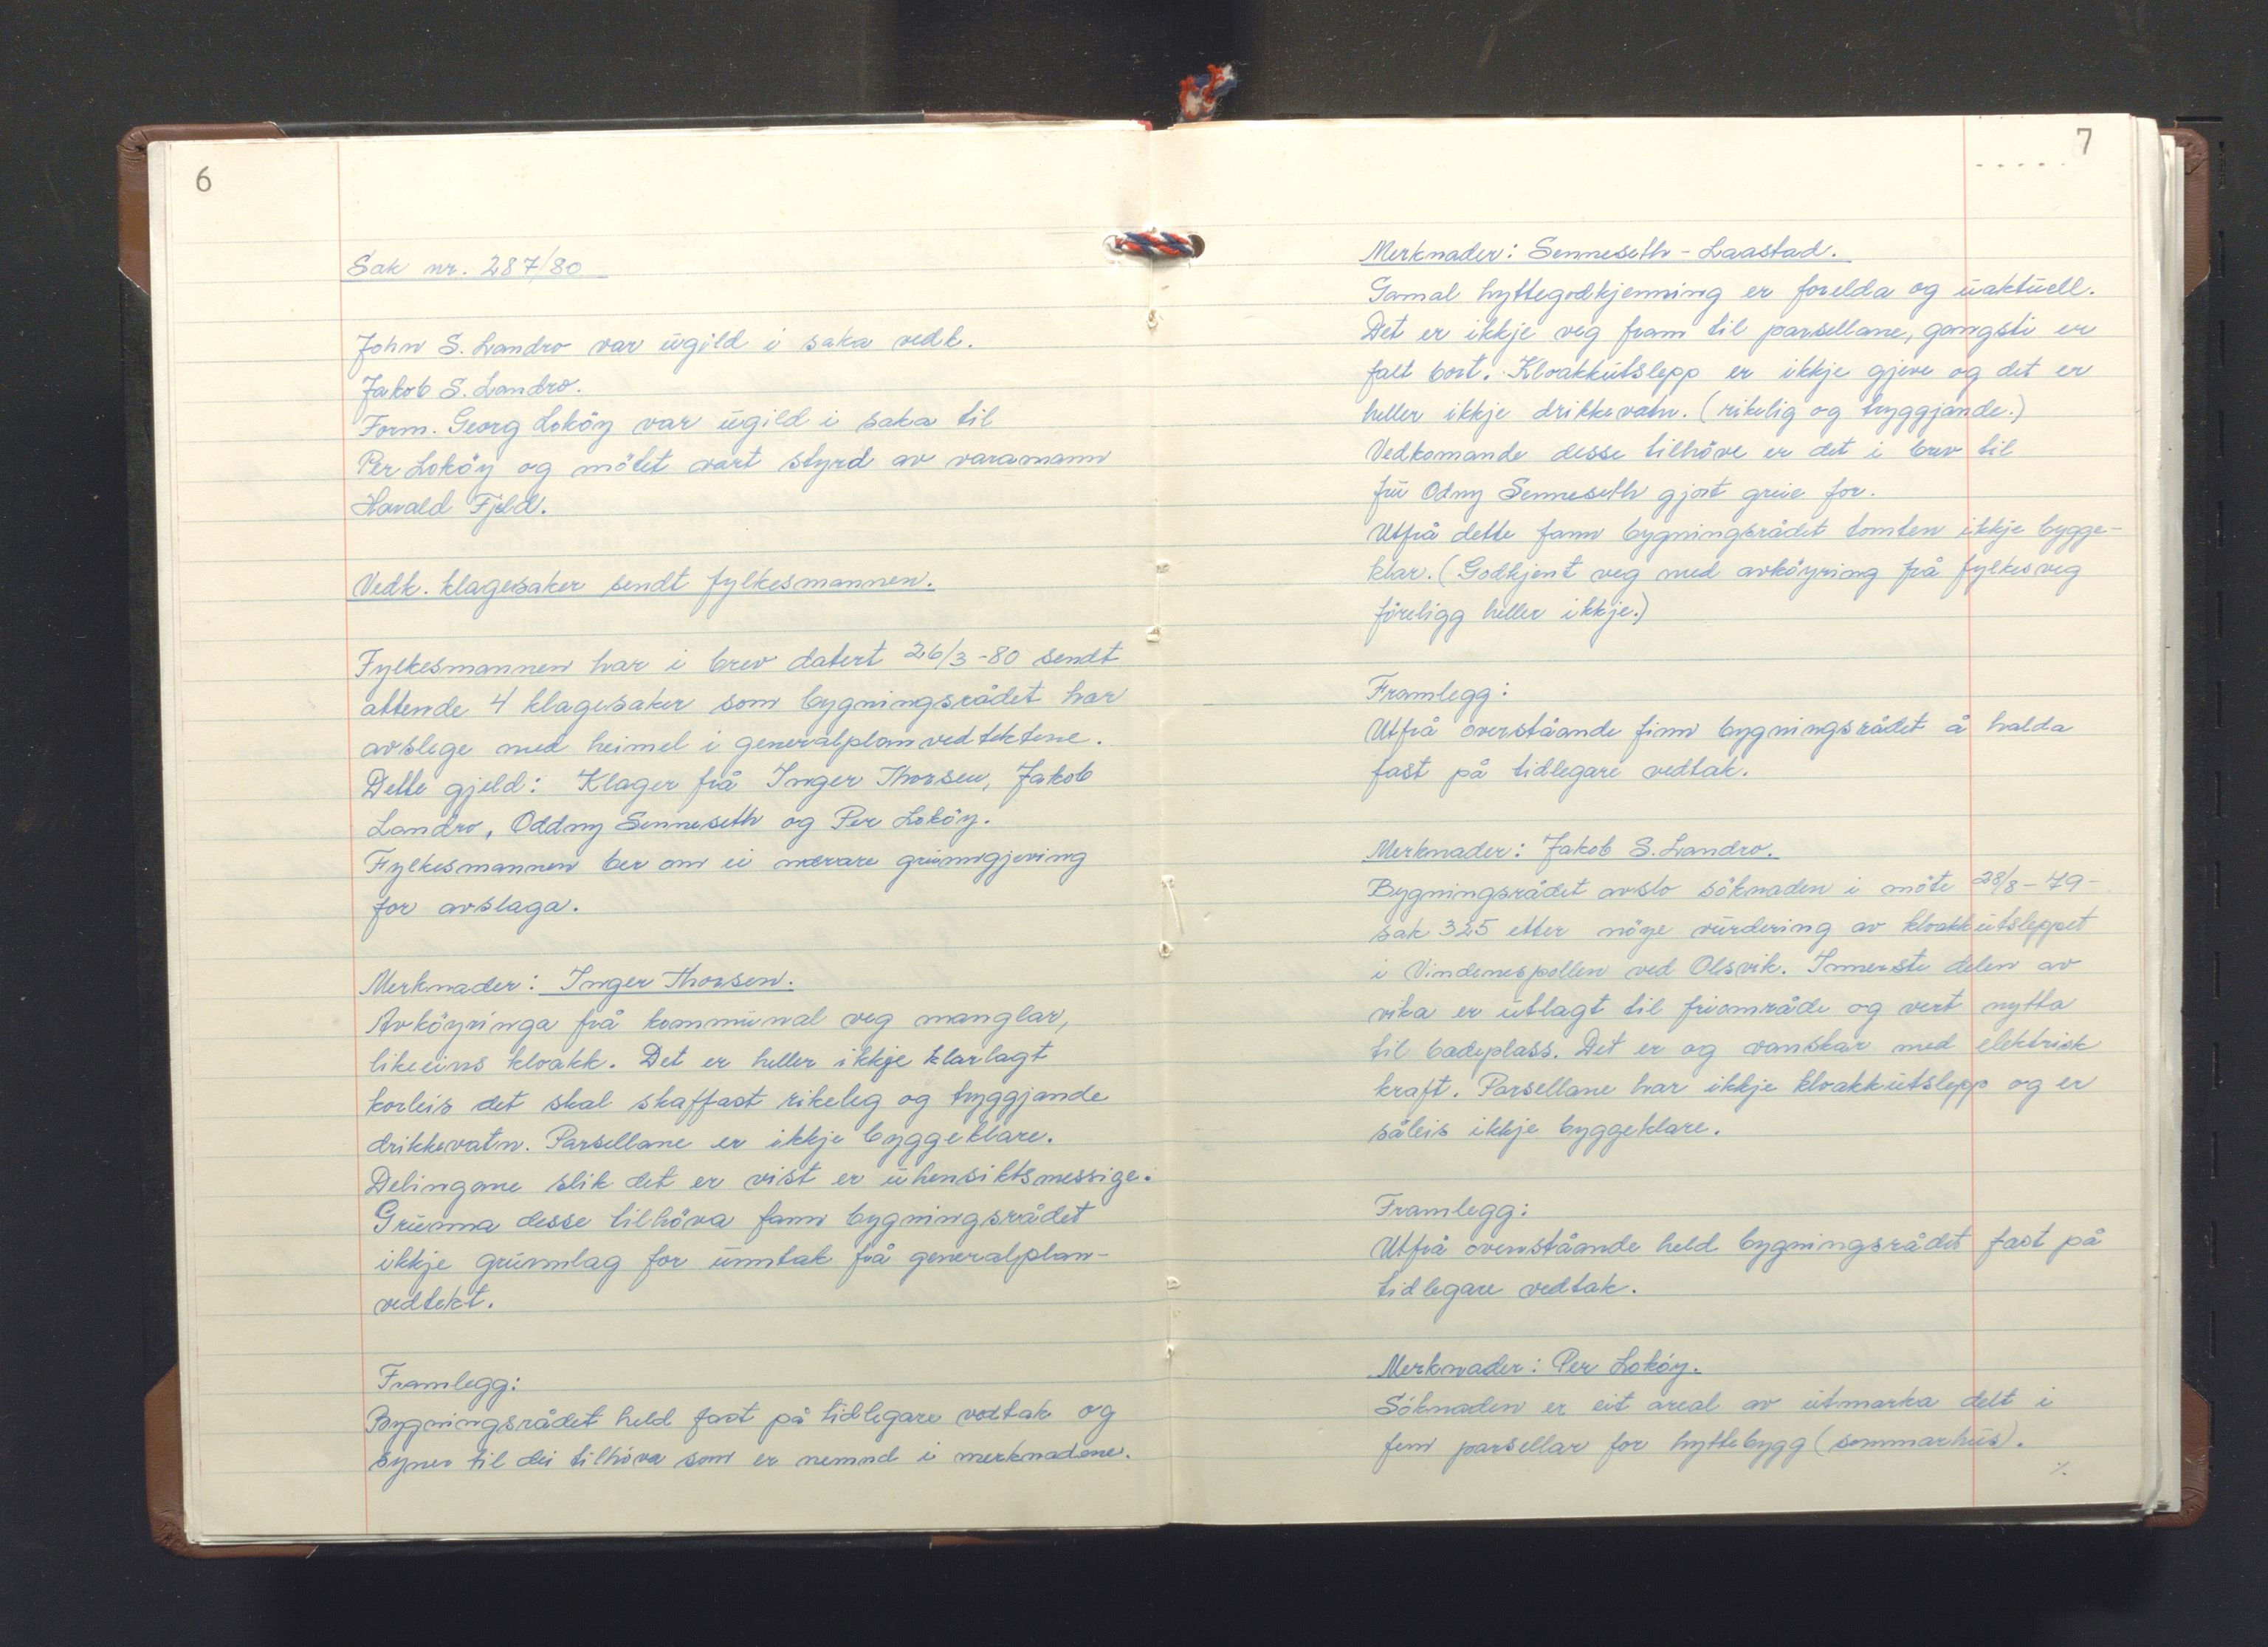 6
Sak nr. 287/80
John S. Landro var ugild i saka vedk.
Jakob S. Landro.
Form. Georg Loköy var ugild i saka til
Per Loköy og mötet vart styrd av varamann
Harald Fjeld.
Vedk. klagesaker sendt fylkesmannen.
Fylkesmannen har i brev datert 26/3-80 sendt
attende 4 klagesaker som bygningsrådet har
avslege med heimel i generalplanvedtektene.
Dette gjeld: Klager frå Inger Thorsen, Jakob
Landro, Oddny Senneseth og Per Loköy.
Fylkesmannen ber om ei nærare grunngjeving
for avslaga.
Merknader: Inger Thorsen.
Avköyringa frå kommunal veg manglar,
likeeins kloakk. Det er heller ikkje klarlagt
korleis det skal skaffast rikeleg og tryggjande
drikkevatn. Parsellane er ikkje byggeklare.
Delingane slik det er vist er uhensiktsmessige.
Grunna desse tilhöva fann bygningsrådet
ikkje grunnlag for unntak frå generalplan-
vedtekt.
Framlegg:
Bygningsrådet held fast på tidlegare vedtak og
syner til dei tilhöva som er nemnd i merknadane.
7
Merknader: Senneseth - Laastad.
Gamal hyttegodkjenning er forelda og uaktuell.
Det er ikkje veg fram til parsellane, gangsti er
falt bort. Kloakkutslepp er ikkje gjeve og det er
heller ikkje drikkevatn. (rikelig og tryggjande.)
Vedkomande desse tilhöve er det i brev til
fru Odny Senneseth gjort greie for.
Utfrå dette fann bygningsrådet tomten ikkje bygge-
klar. (Godkjent veg med avköyring frå fylkesveg
föreligg heller ikkje.)
Framlegg:
Utfrå overståande finn bygningsrådet å halda
fast på tidlegare vedtak.
Merknader: Jakob S. Landro.
Bygningsrådet avslo söknaden i möte 28/8-79-
sak 325 etter nöye vurdering av kloakkutsleppet
i Vindenespollen ved Olsvik. Innerste delen av
vika er utlagt til friområde og vert nytta
til badeplass. Det er og vanskar med elektrisk
kraft. Parsellane har ikkje kloakkutslepp og er
såleis ikkje byggeklare.
Framlegg:
Utfrå ovenståande held bygningsrådet fast på
tidlegare vedtak.
Merknader: Per Loköy.
Söknaden er eit areal av utmarka delt i
fem parsellar for hyttebygg (sommarhus).
%.